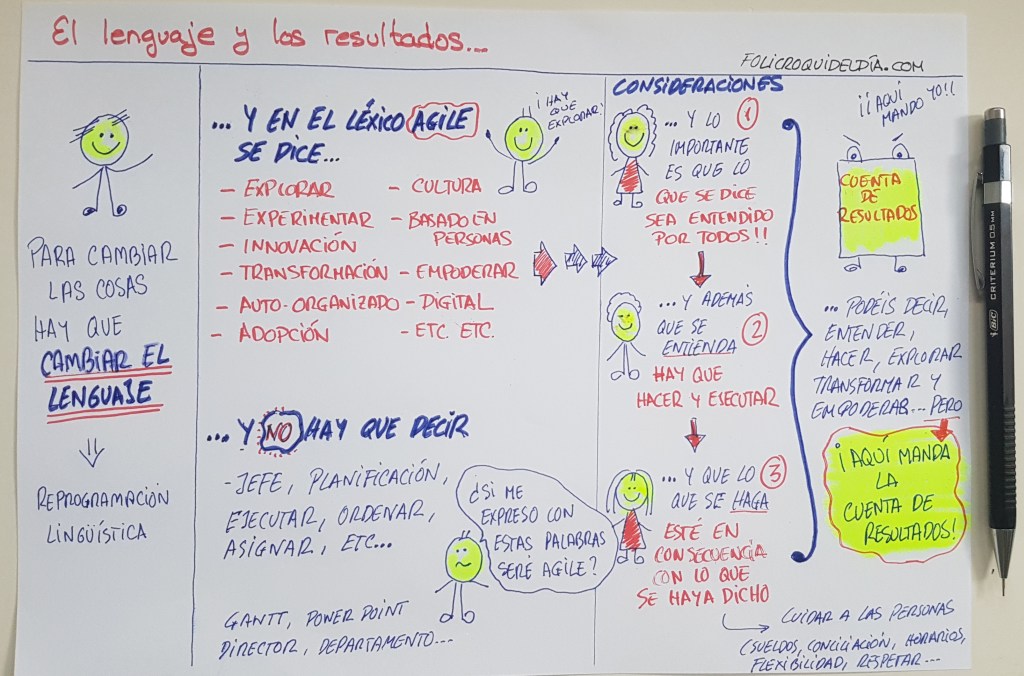 El lenguaje y los resultados...
FOLICROQUIDELDÍA.COM
PARA CAMBIAR
LAS COSAS
HAY QUE
CAMBIAR EL
LENGUAJE
REPROGRAMACIÓN
LINGÜÍSTICA
... Y EN EL LÉXICO AGILE
SE DICE...
¡HAY
QUE
EXPLORAR!
- EXPLORAR
- EXPERIMENTAR
- INNOVACIÓN
- TRANSFORMACIÓN
- AUTO-ORGANIZADO
- ADOPCIÓN
- CULTURA
- BASADO EN
PERSONAS
- EMPODERAR
- DIGITAL
- ETC. ETC.
... Y NO HAY QUE DECIR
- JEFE, PLANIFICACIÓN,
EJECUTAR, ORDENAR,
ASIGNAR, ETC...
GANTT, POWER POINT
DIRECTOR, DEPARTAMENTO...
¿SI ME
EXPRESO CON
ESTAS PALABRAS
SERÉ AGILE?
CONSIDERACIONES
... Y LO 1
IMPORTANTE
ES QUE LO
QUE SE DICE
SEA ENTENDIDO
POR TODOS!!
... Y ADEMÁS
QUE SE 2
ENTIENDA
HAY QUE
HACER Y EJECUTAR
... Y QUE LO 3
QUE SE HAGA
ESTÉ EN
CONSECUENCIA
CON LO QUE
SE HAYA DICHO
CUIDAR A LAS PERSONAS
(SUELDOS, CONCILIACIÓN, HORARIOS,
FLEXIBILIDAD, RESPETAR...
¡¡AQUÍ
MANDO YO!!
CUENTA
DE
RESULTADOS
... PODÉIS DECIR,
ENTENDER,
HACER, EXPLORAR
TRANSFORMAR Y
EMPODERAR... PERO
¡AQUÍ MANDA
LA
CUENTA DE
RESULTADOS!
BIC CRITERIUM 0.5 mm